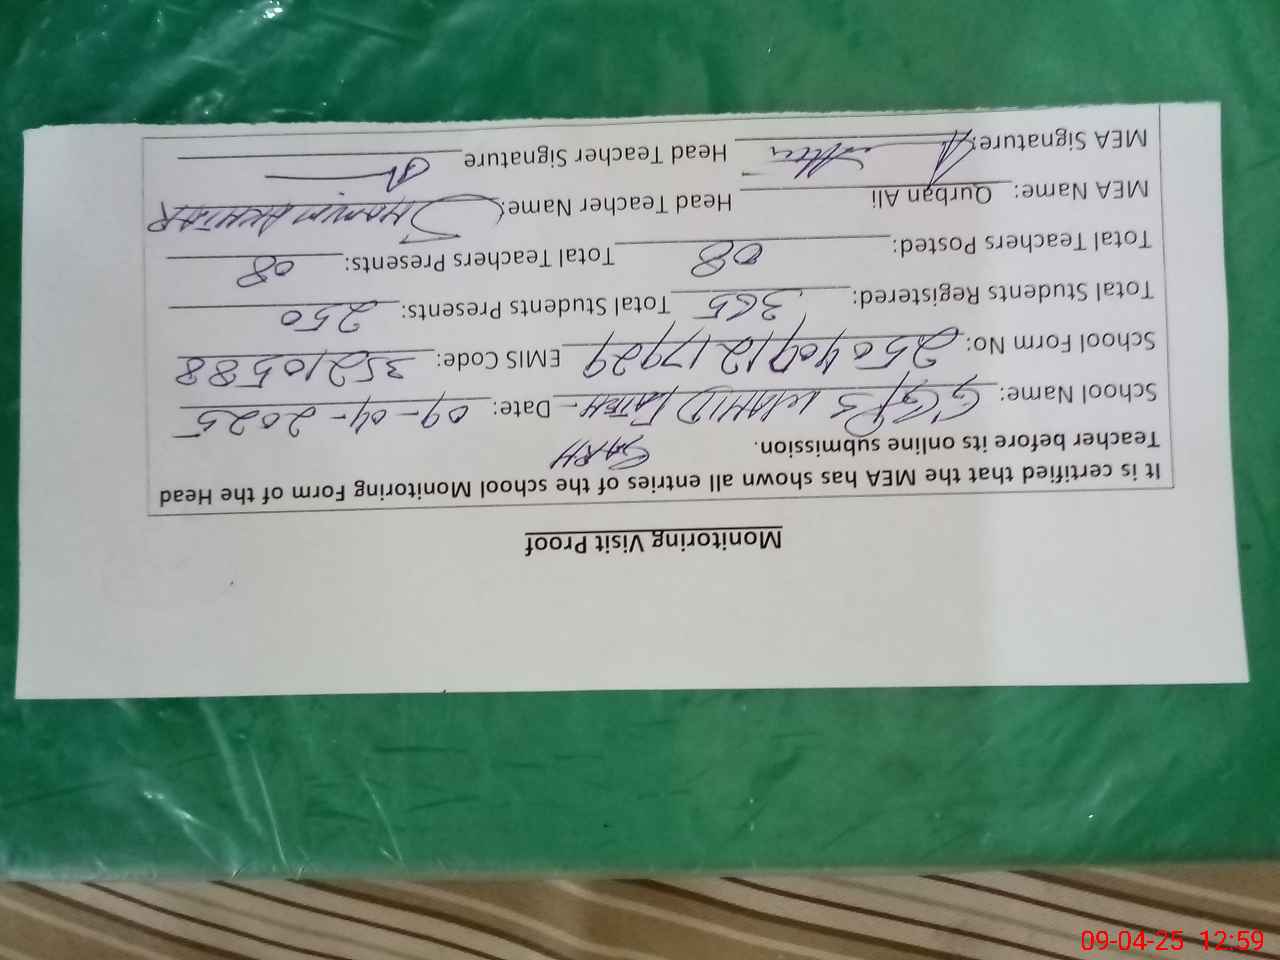 Monitoring Visit Proof
It is certified that the MEA has shown all entries of the school Monitoring Form of the Head
Teacher before its online submission.
School Name: GGPS WAHID FATEH- GARH Date: 09-04-2025
School Form No: 2504091217929 EMIS Code: 35210588
Total Students Registered: 365 Total Students Presents: 250
Total Teachers Posted: 08 Total Teachers Presents: 08
MEA Name: Qurban Ali Head Teacher Name: SHAMIM AKHTAR
MEA Signature: Head Teacher Signature
09-04-25 12:59